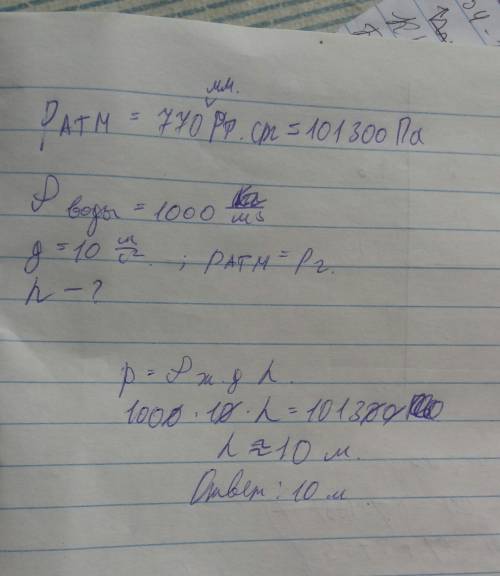 мм.
PАТМ = 770 Рт. ст = 101300 Па
ρ воды = 1000 кг/м3
g = 10 м/с2 ; PАТМ = Pг.
h - ?
p = ρж. g h.
1000 · 10 · h = 101300
h ≈ 10 м.
Ответ: 10 м